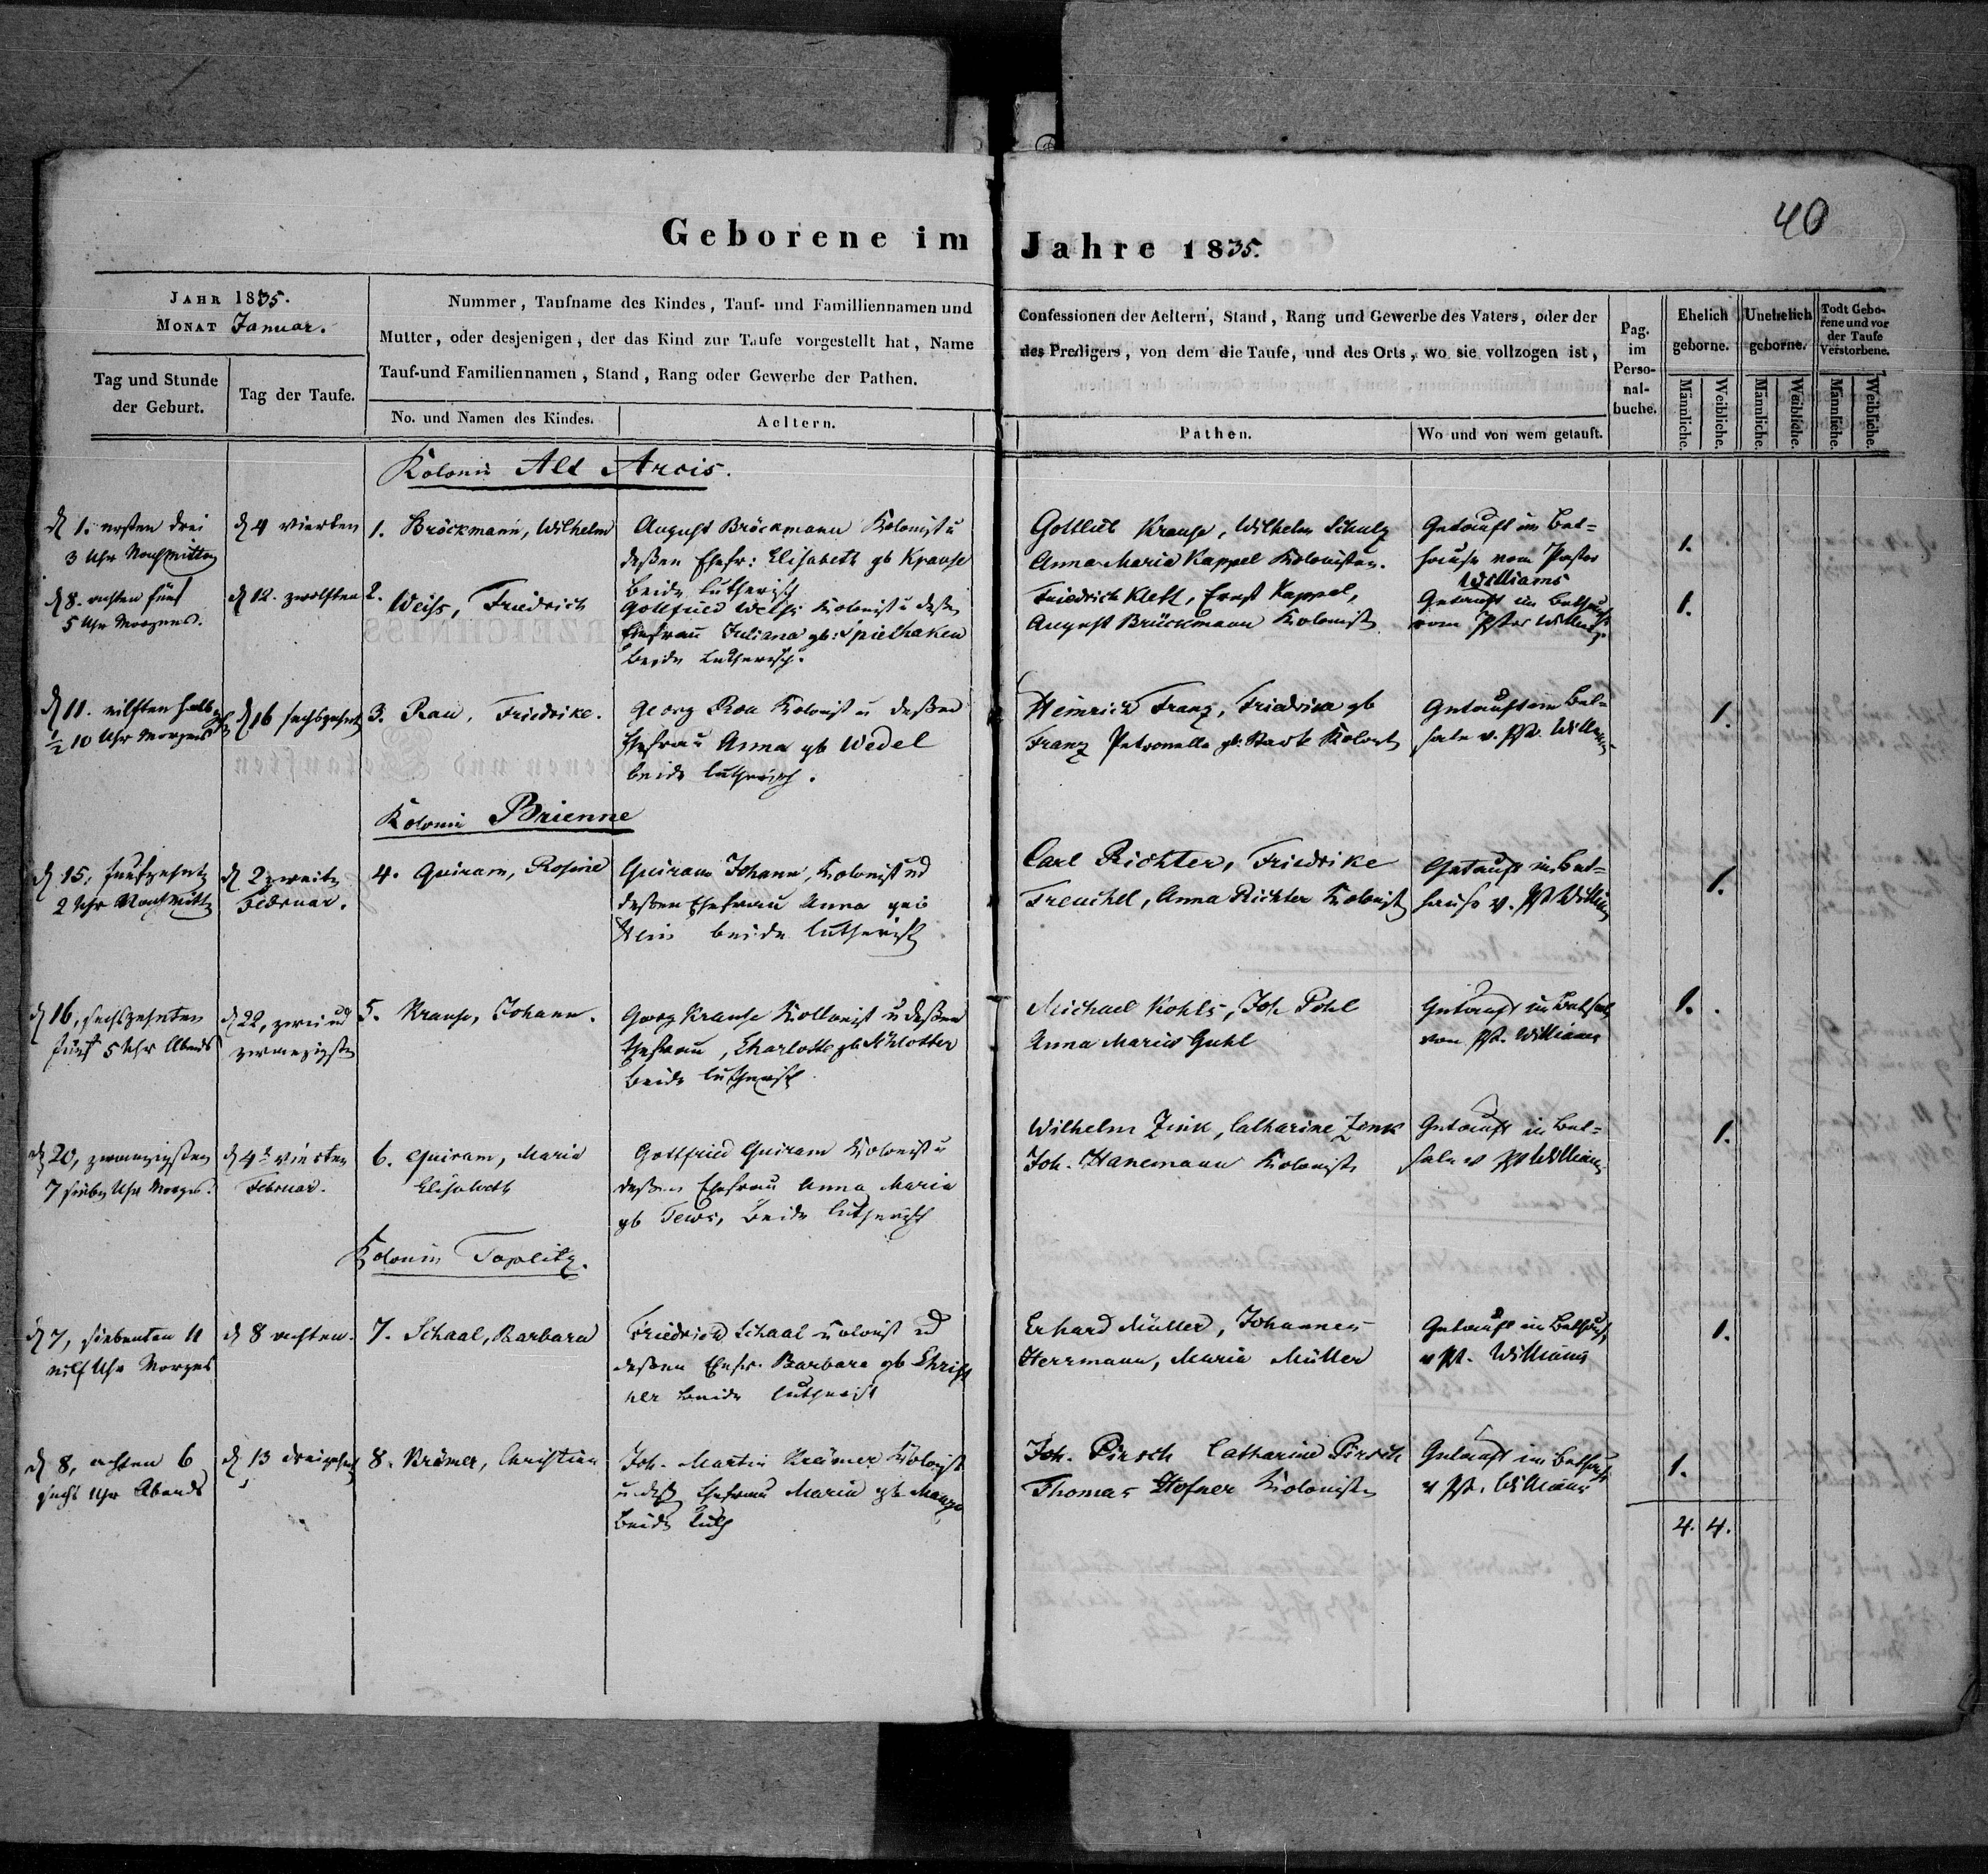 40
Geborene im Jahre 1835.
JAHR 1835.
MONAT Januar.
Tag und Stunde
der Geburt.
Tag der Taufe.
Nummer, Taufname des Kindes, Tauf- und Familliennamen und
Mutter, oder desjenigen, der das Kind zur Taufe vorgestellt hat, Name
Tauf-und Familiennamen, Stand, Rang oder Gewerbe der Pathen.
No. und Namen des Kindes.
Aeltern.
Confessionen der Aeltern, Stand, Rang und Gewerbe des Vaters, oder der
des Predigers, von dem die Taufe, und des Orts, wo sie vollzogen ist,
Pathen.
Wo und von wem getauft.
Pag.
im
Perso-
nal-
buche.
Ehelich
geborne.
Unehelich
geborne.
Todt Gebo-
rene und vor
der Taufe
Verstorbene.
Männliche.
Weibliche.
Männliche.
Weibliche.
Männliche.
Weibliche.
Kolonie Alt Arcis.
d 1. ersten drei
3 Uhr Nachmittag
d 4 vierten
1. Bröckmann, Wilhelm
August Bröckmann Kolonist u
deßen Ehefr: Elisabeth gb Krause
beide lutherisch
Gottlieb Krause, Wilhelm Schulz
Anna Maria Kappel Kolonisten.
Getauft im Bet=
hause vom Pastor
Williams
1.
d 8. achten fünf
5 Uhr Morgens.
d 12. zwölften
2. Weiss, Friedrich
Gottfried Weiss Kolonist u deßen
Ehefrau Juliana gb: Spielhaken
beide lutherisch.
Friedrich Klett, Ernst Kappel,
August Brückmann Kolonist
Getauft im Bethause
vom Pstor Williams
1.
d 11. eilften halb
½ 10 Uhr Morgens
d 16 sechszehnt
3. Rau, Friedrike.
Georg Rau Kolonist u deßen
Ehefrau Anna gb Wedel
beide lutherisch.
Heinrich Franz, Friedrica gb
Franz Petronella gb. Stark Kolonist
Getauft im Bet=
sale v. Pst. Williams
1.
Kolonie Brienne
d 15, fünfzehnt
2 Uhr Nachmitt
d 2 zweiten
Februar.
4. Quiram, Rosine
Quiram Johann, Kolonist ud
deßen Ehefrau Anna geb
Hein beide lutherisch
Carl Richter, Friedrike
Treuchel, Anna Richter Kolonist
Getauft im Bet=
hause v. Pst Williams
1.
d 16, sechszehnten
fünf 5 Uhr Abends
d 22, zwei ud
zwanzigsten
5. Krause, Johann.
Georg Krause Kollonist u deßen
Ehefrau, Charlotte gb Schlotter
beide lutherisch
Michael Kohls, Joh Pohl
Anna Maria Guhl
Getauft im Betsale
von Pst. Williams
1.
d 20, zwanzigsten
7 sieben Uhr Morgens.
d 4t vierten
Februar.
6. Quiram, Maria
Elisabeth
Gottfried Quiram Kolonist u
deßen Ehefrau Anna Maria
gb Tews, beide lutherisch
Wilhelm Zink, Catharine Zink
Joh. Hanemann Kolonist
Getauft im Bet=
sale v Pst Williams
1.
Kolonie Toplitz.
d 7, siebenten 11
eilf Uhr Morgens
d 8 achten.
7. Schaal, Barbara
Friedrich Schaal Kolonist ud
deßen Ehefr. Barbara gb Christ
ner beide lutherisch
Erhard Müller, Johannes
Herrmann, Maria Müller
Getauft im Bethause
v Pst. Williams
1.
d 8, achten 6
sechs Uhr Abends
d 13 dreizehnt
8. Krämer, Christian
Joh. Martin Krämer Kolonist
u deß Ehefrau Maria gb
beide luth
Joh. Pirsch Catharina Pirsch
Thomas Hofner Kolonisten
Getauft im Bethause
v Pst. Williams
1.
4. 4.